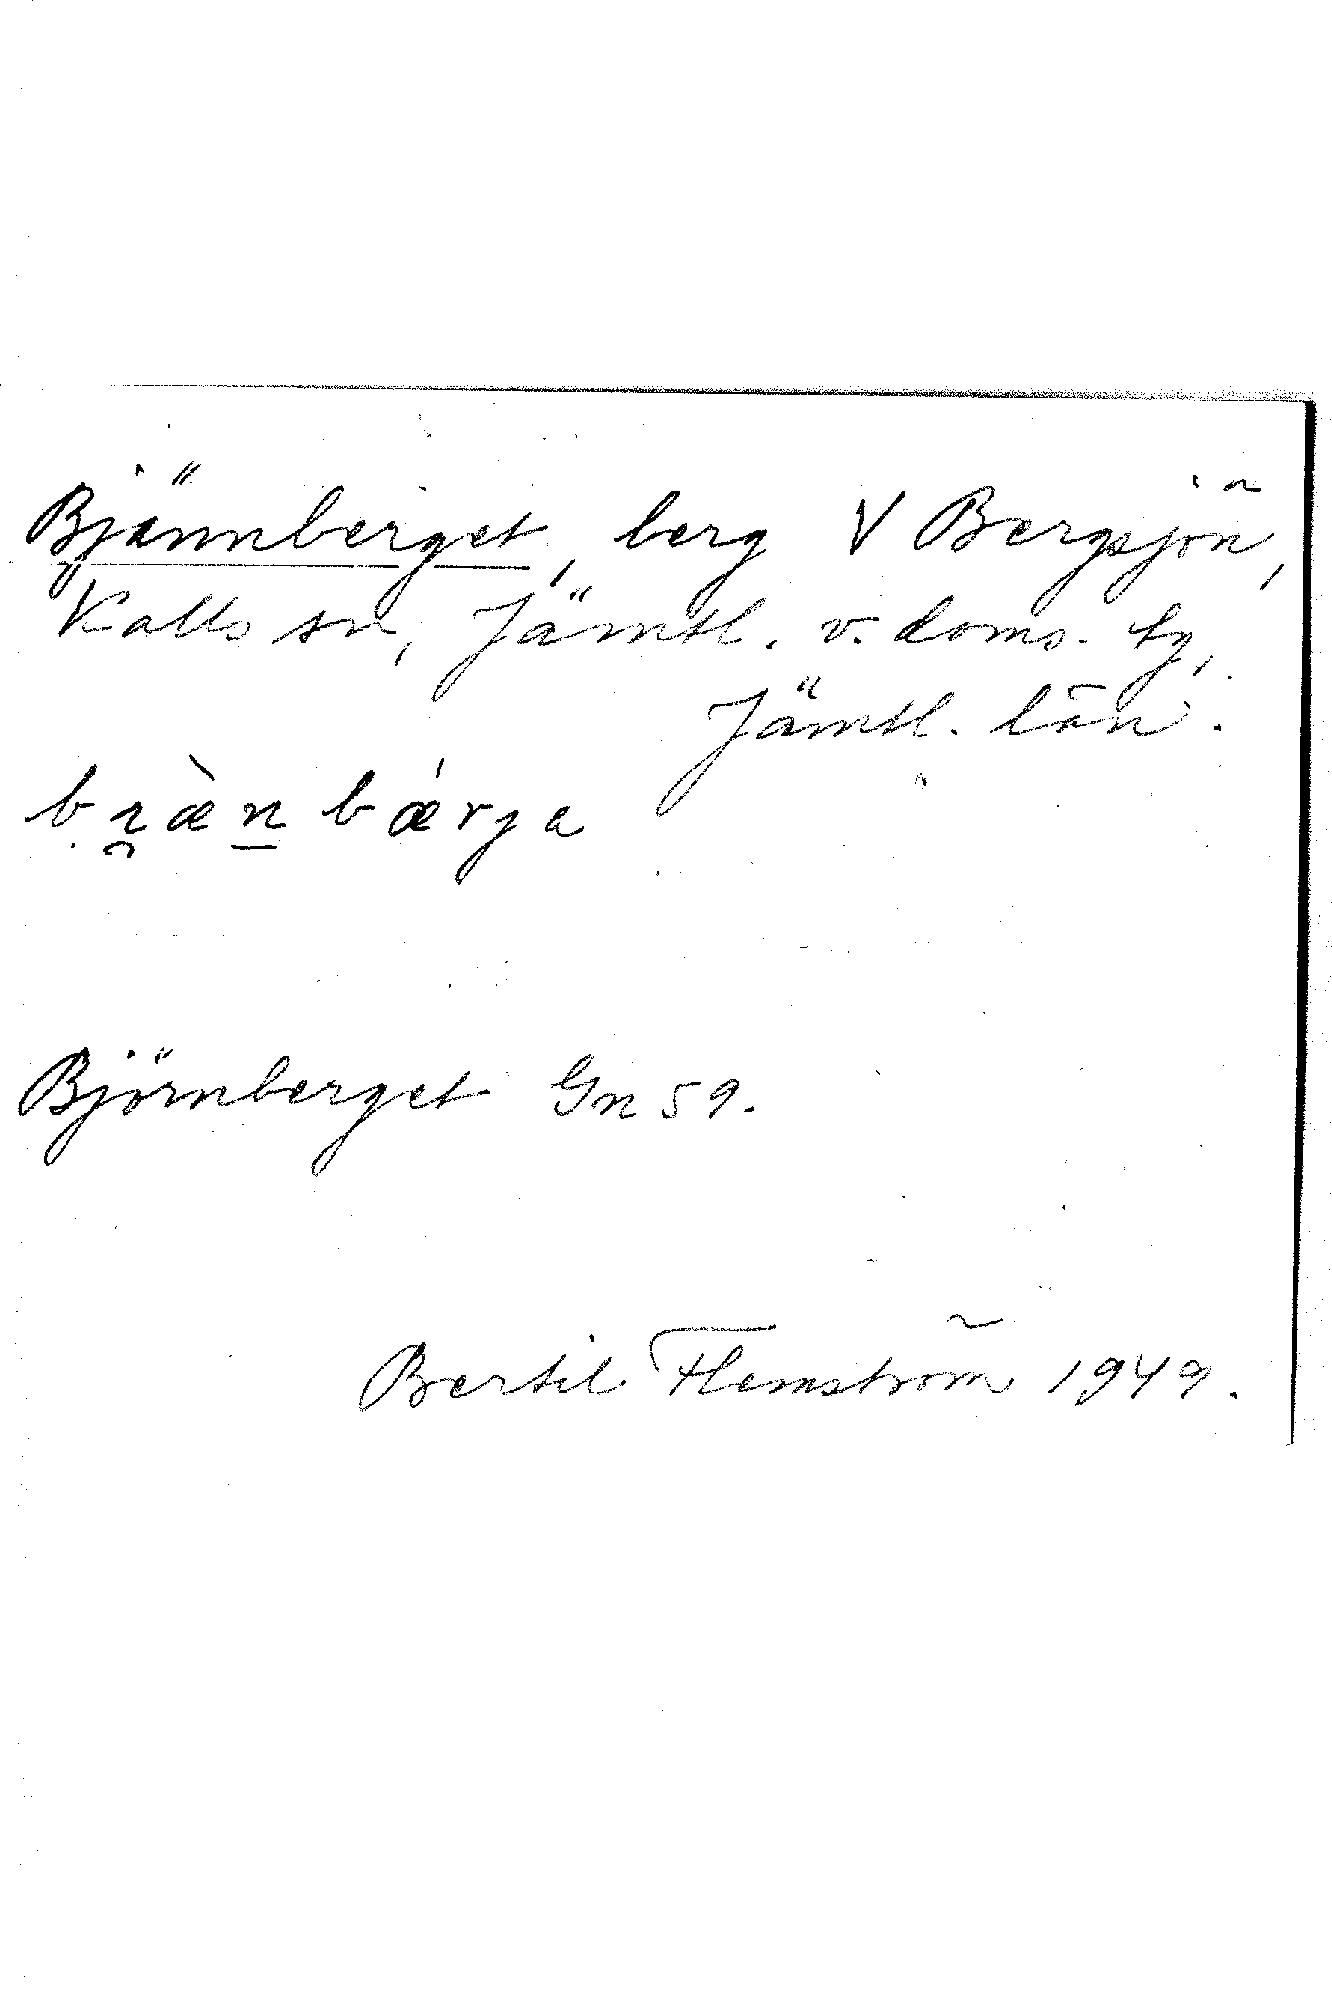 Bjännberget, berg V Bergsjön,
Kalls sn, Jämtl. v. doms. tg,
Jämtl. län.
bɿ̯æ̀n̲bǽrja
Björnberget Gn 59.
Bertil Flemström 1949.